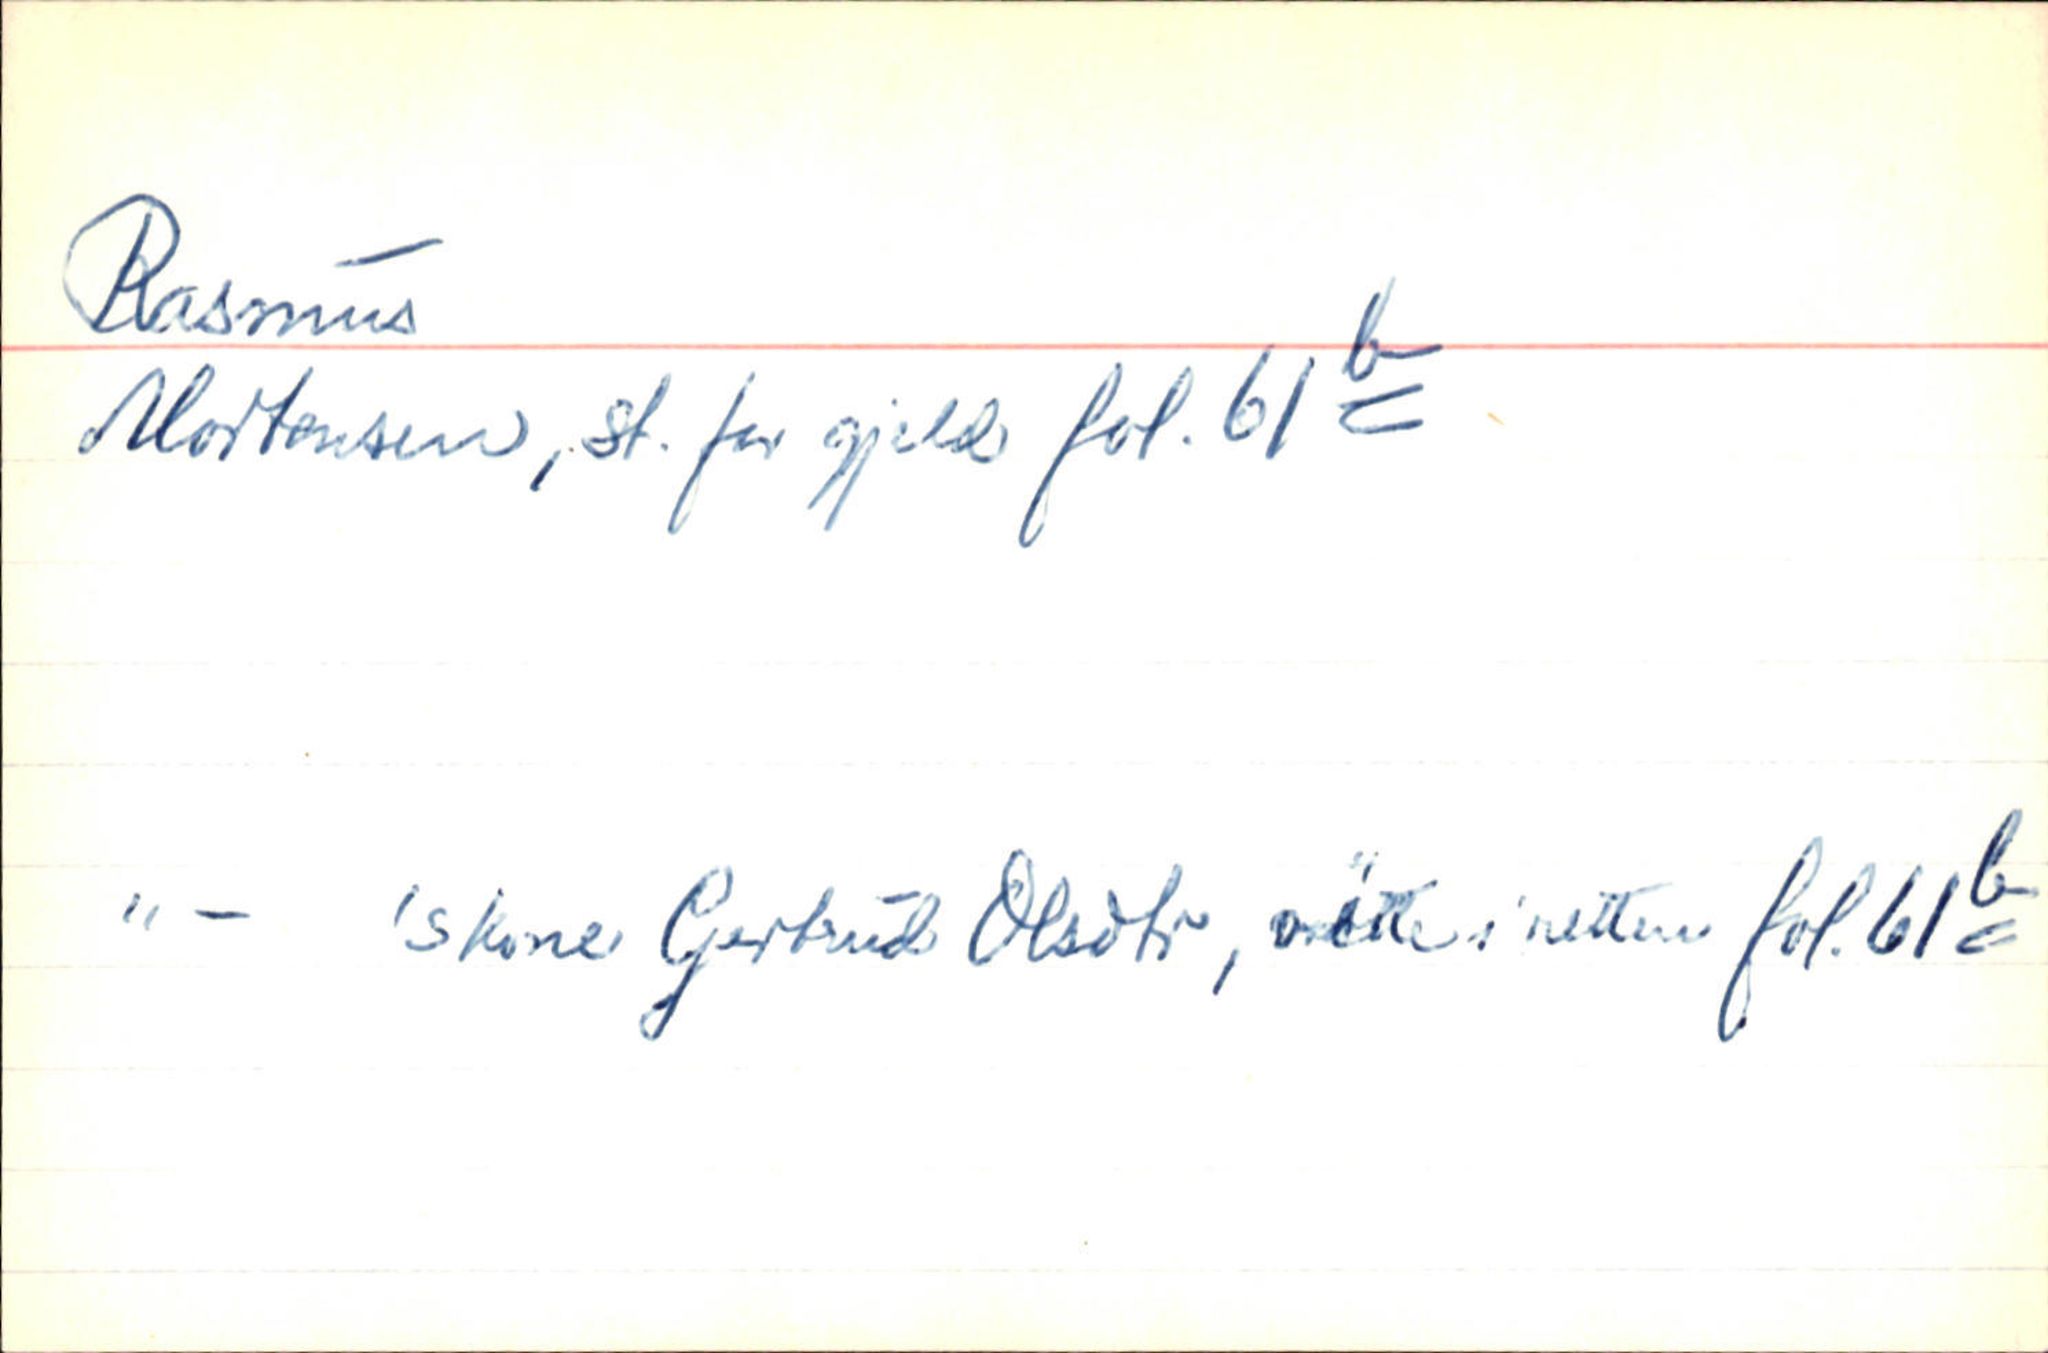 Rasmus
Mortensen, st. for gjeld fol. 61b
" - 's kone Gjertrud Olsdtr, mötte i retten fol. 61b